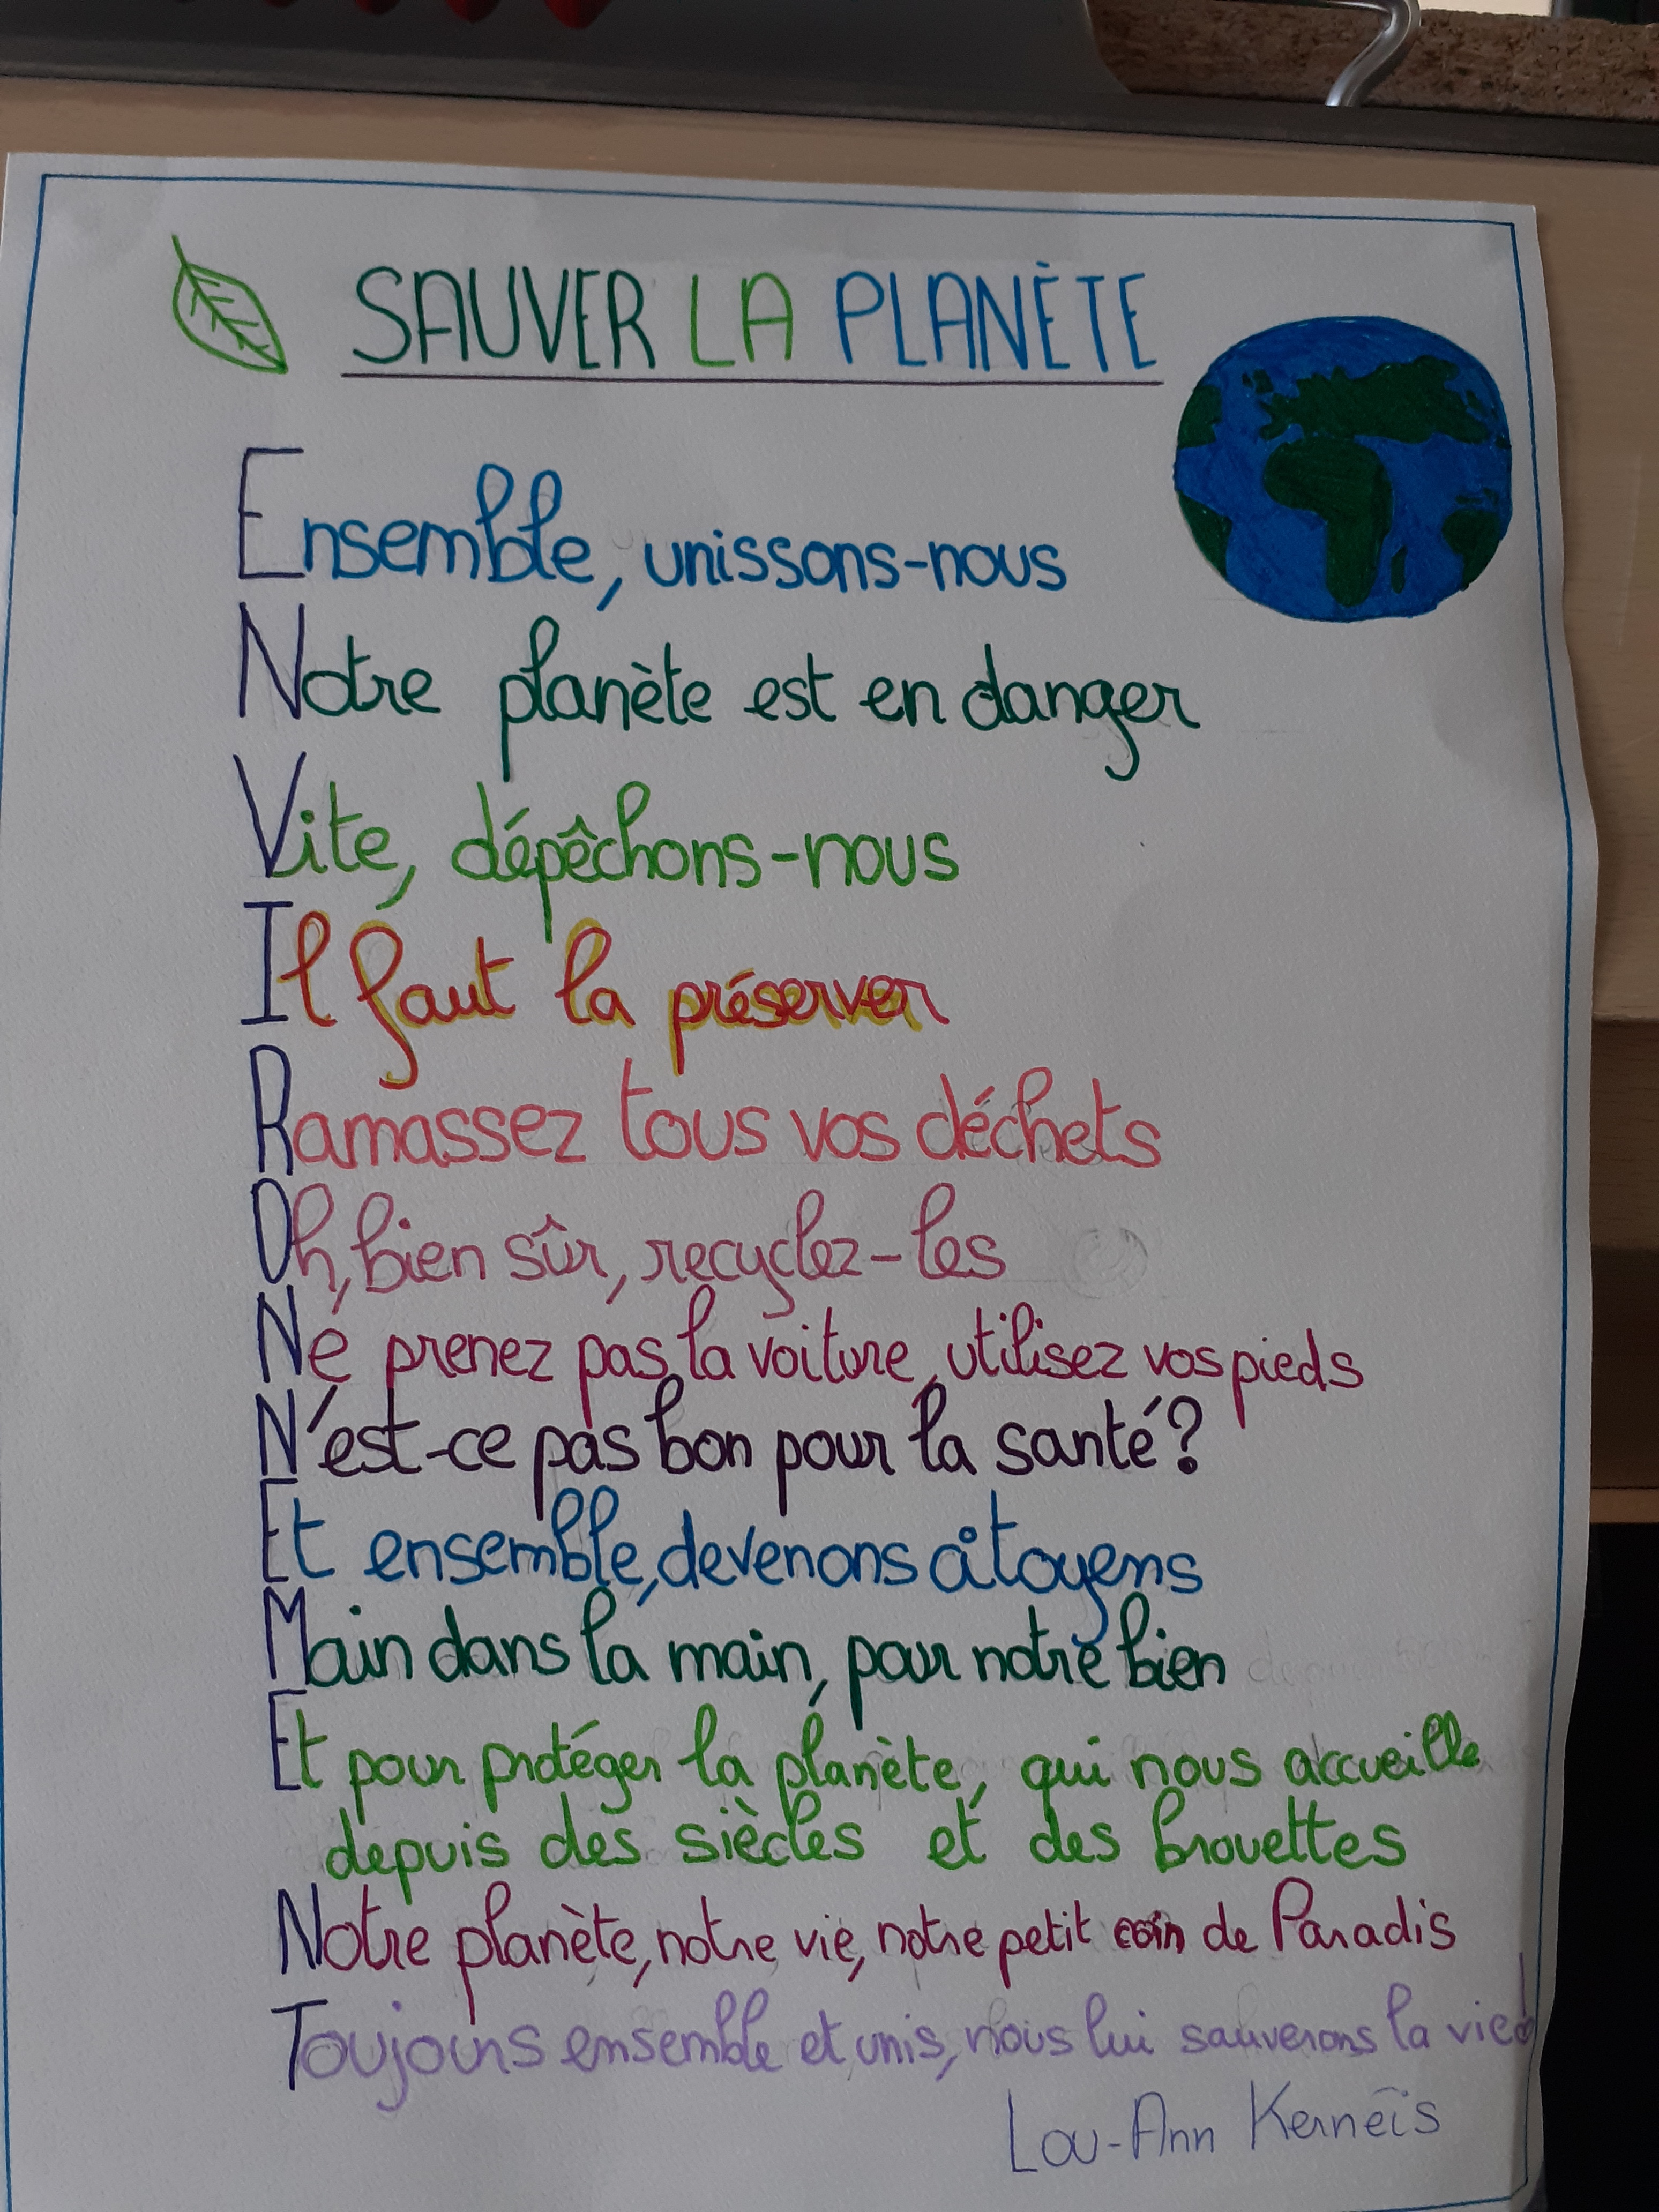 SAUVER LA PLANÈTE
Ensemble, unissons-nous
Notre planète est en danger
Vite, dépêchons-nous
Il faut la préserver
Ramassez tous vos déchets
Oh, bien sûr, recyclez-les
Ne prenez pas la voiture, utilisez vos pieds
N'est-ce pas bon pour la santé?
Et ensemble, devenons citoyens
Main dans la main, pour notre bien
Et pour protéger la planète, qui nous accueille
depuis des siècles et des brouettes
Notre planète, notre vie, notre petit coin de Paradis
Toujours ensemble et unis, nous lui sauverons la vie!
Lou-Ann Kerneïs